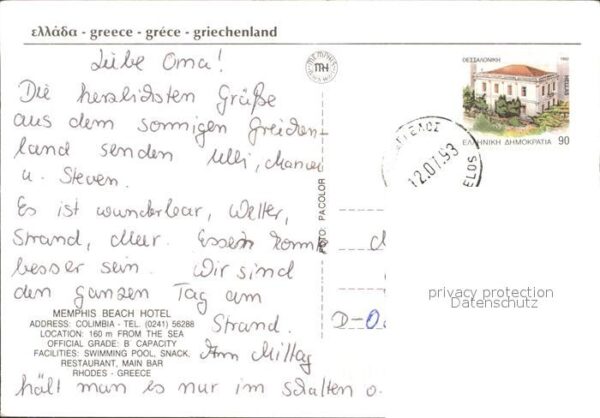 ελλάδα - greece - gréce - griechenland
Liebe Oma!
Die herzlichsten Grüße
aus dem sonnigen Griechen-
land senden Ulli,
u. Steven.
Es ist wunderbar, Wetter,
Strand, Meer. Essen könnte
besser sein. Wir sind
den ganzen Tag am
Strand.
Am Mittag
hält man es nur im Schatten o.
MEMPHIS BEACH HOTEL
ADDRESS: COLIMBIA - TEL. (0241) 56288
LOCATION: 160 m FROM THE SEA
OFFICIAL GRADE: B CAPACITY
FACILITIES: SWIMMING POOL, SNACK,
RESTAURANT, MAIN BAR
RHODES - GREECE
MEMPHIS
MH
FOTO: PACOLOR
ΘΕΣΣΑΛΟΝΙΚΗ 1992
HELLAS
ΕΛΛΗΝΙΚΗ ΔΗΜΟΚΡΑΤΙΑ 90
12.07.93
D-0
privacy protection
Datenschutz